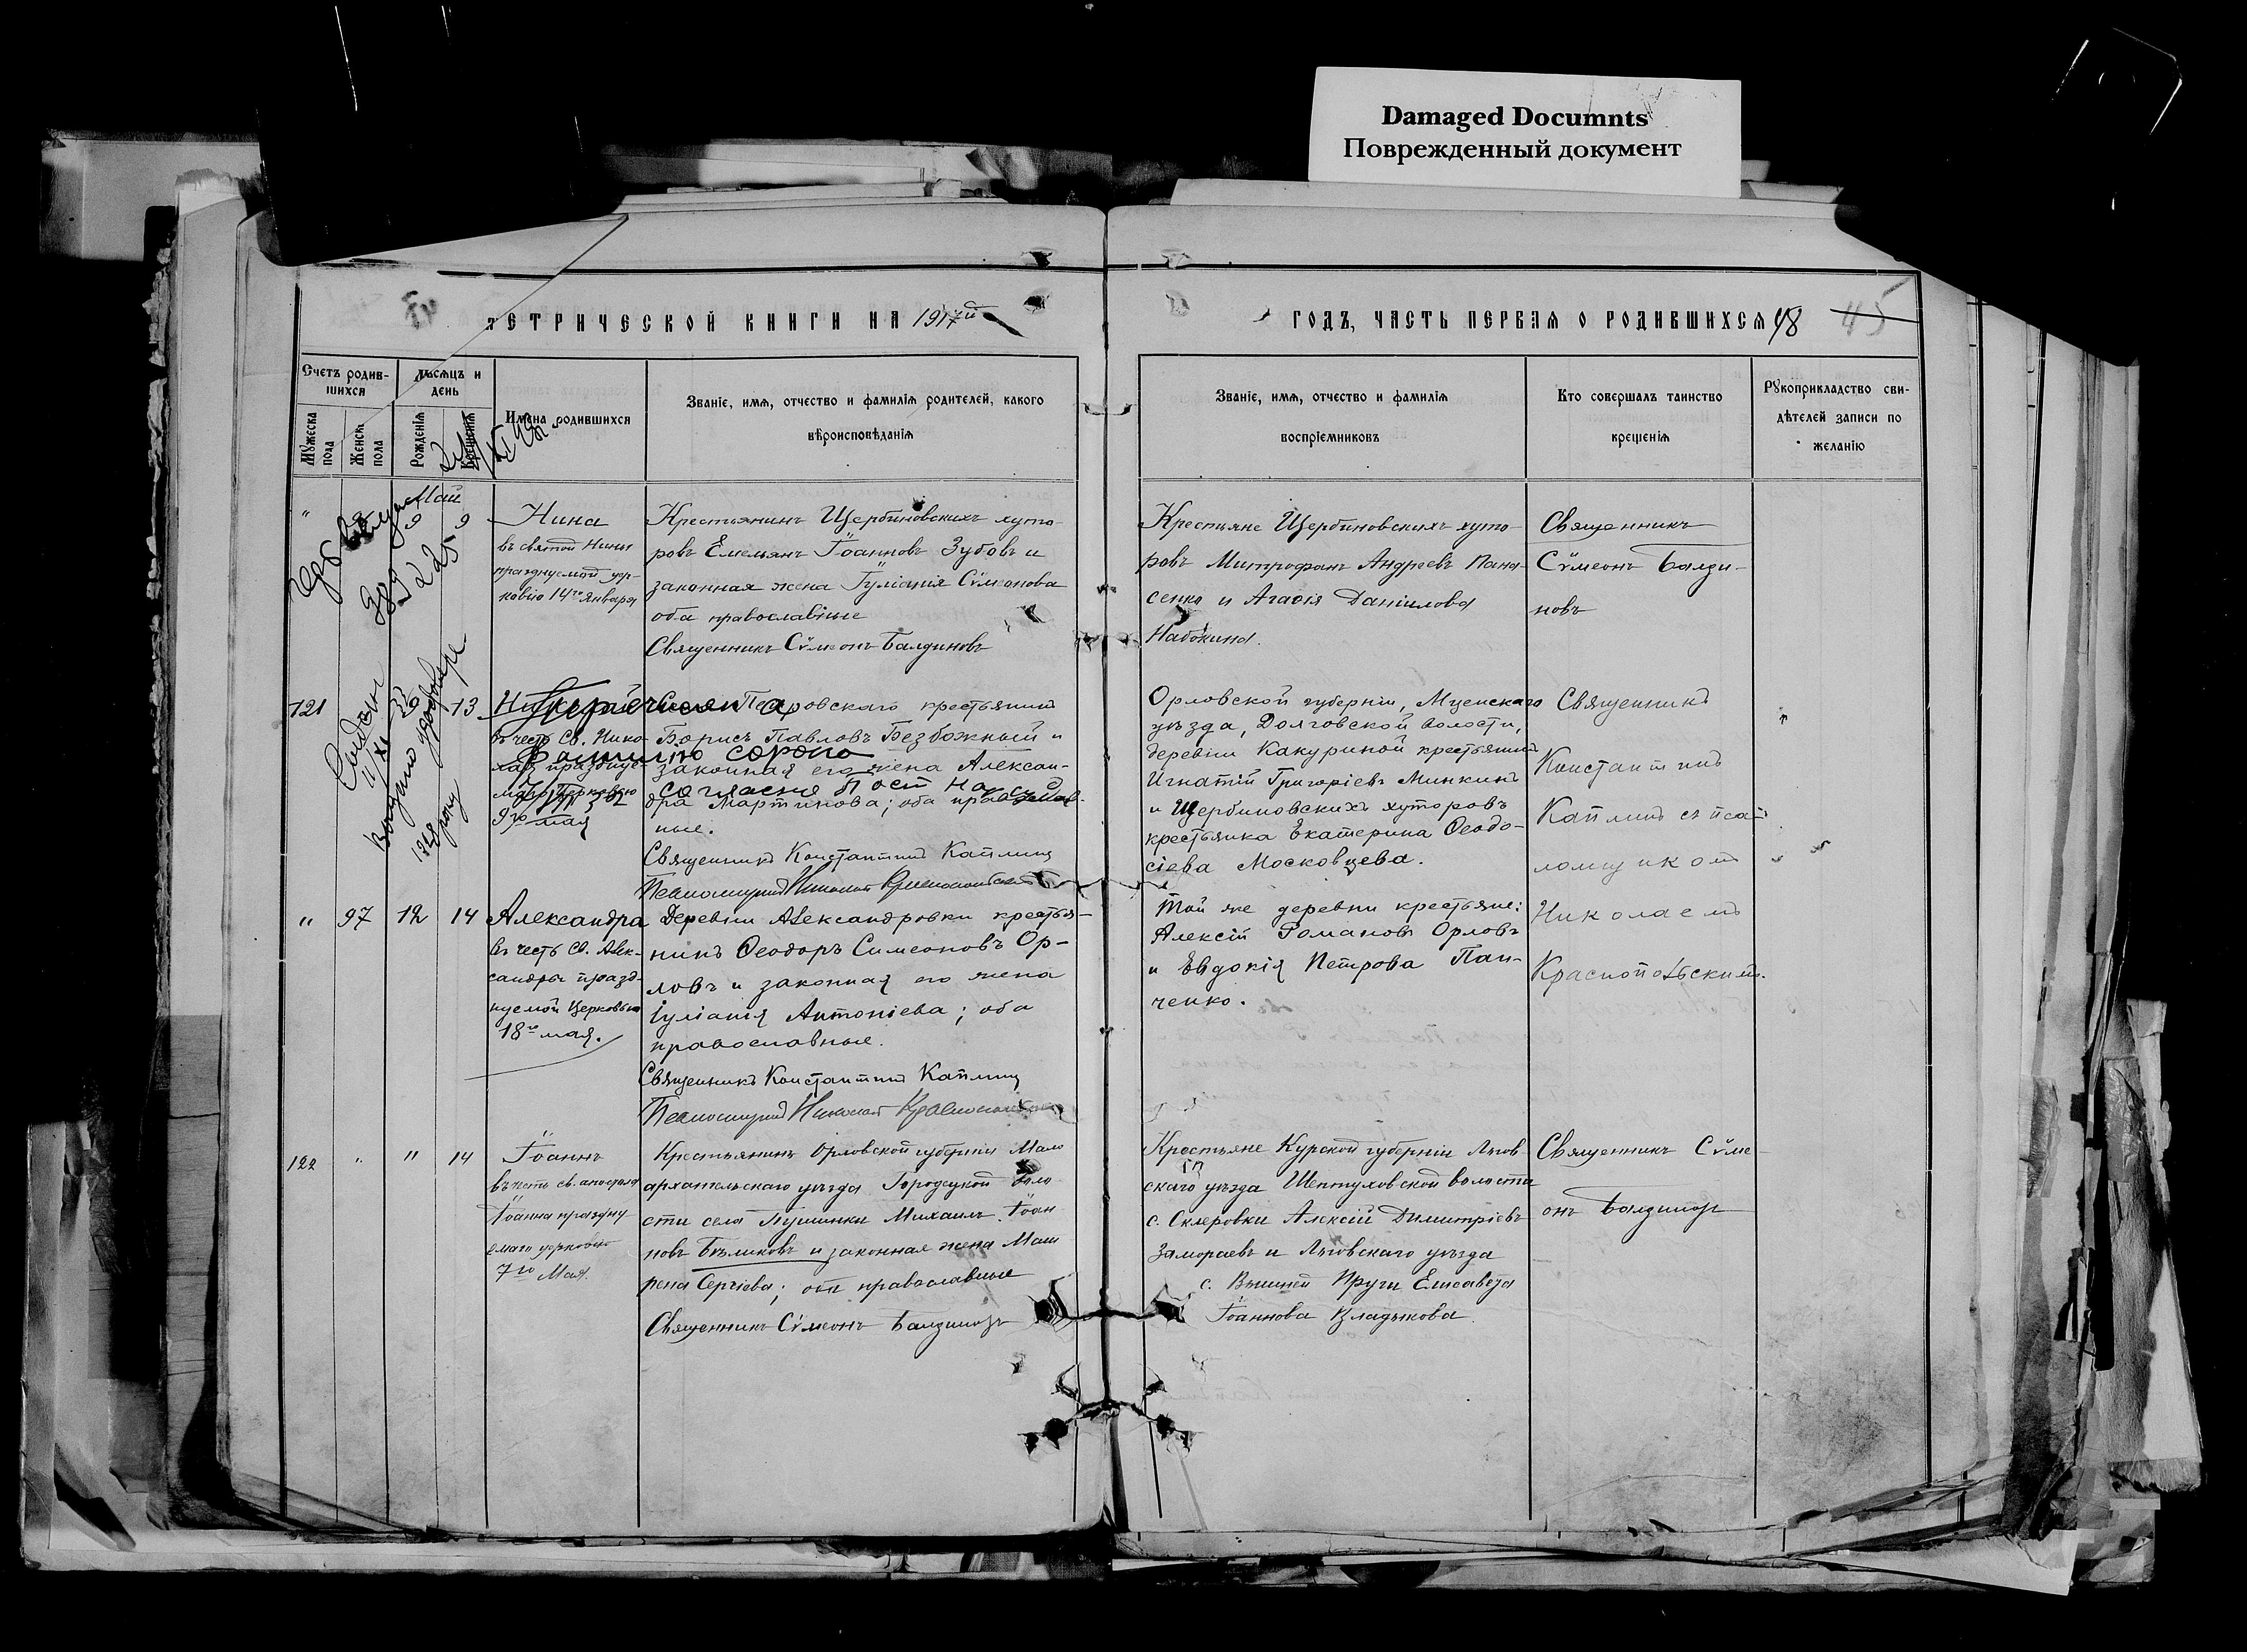 Damaged Documnts
Поврежденный документ
МЕТРИЧЕСКОЙ КНИГИ НА 1917й
ГОДЪ, ЧАСТЬ ПЕРВАЯ О РОДИВШИХСЯ
48
45
Счетъ родив-
шихся
Мужеска
пола
Женска
пола
Мѣсяцъ и
день
Рожденія
Крещенія
Имена родившихся
Званіе, имя, отчество и фамилія родителей, какого
вѣроисповѣданія
Званіе, имя, отчество и фамилія
воспріемниковъ
Кто совершалъ таинство
крещенія
Рукоприкладство сви-
дѣтелей записи по
желанію
Май
" 9 9
Нина
въ святой Нины
празднуемой цер-
ковію 14го Января
Крестьянинъ Щербиновскихъ хуто-
ровъ Емельянъ Іоанновъ Зубовъ и
законная жена Іуліанія Сѵмеонова
оба православные
Священникъ Сѵмеонъ Балдиновъ
Крестьяне Щербиновскихъ хуто-
ровъ Митрофанъ Андреевъ Пана-
сенко и Агаѳія Даніилова
Набокина.
Священникъ
Сѵмеонъ Балди-
новъ
121 13
въ честь Св. Нико-
лая празднуе-
маго Церковью
9го мая
Петровскаго крестьянинъ
Борисъ Павловъ Безбожный и
законная его жена Алексан-
дра Мартинова; оба православ-
ные.
Священникъ Константинъ Каплинъ
Псаломщикъ Николай
фамилію
согласно
Орловской губерніи, Мценскаго
уѣзда, Долговской волости,
деревни Какуриной крестьянинъ
Игнатій Григоріевъ Минкинъ
и Щербиновскихъ хуторовъ
крестьянка Екатерина Ѳеодо-
сіева Московцева.
Священникъ
Константинъ
Каплинъ съ псал-
ломщикомъ
Николаемъ
Краснопольскимъ.
" 97 12 14
Александра
въ честь Св. Алек-
сандры празд-
нуемой Церковью
18го мая.
Деревни Александровки крестья-
нинъ Ѳеодоръ Симеоновъ Ор-
ловъ и законная его жена
Іуліанія Антоніева; оба
православные.
Священникъ Константинъ Каплинъ
Псаломщикъ Николай
Той же деревни крестьяне:
Алексій Романовъ Орловъ
и Евдокія Петрова Пан-
ченко.
122 " " 14
Іоаннъ
въ честь св. апостола
Іоанна праздну
емаго церковію
7го Мая.
Крестьянинъ Орловской губерніи Мало
архангельскаго уѣзда Городецкой воло
сти села Пушинки Михаилъ Іоан
новъ Бѣликовъ и законная жена Мат
рена Сергіева; оба православные
Священникъ Сѵмеонъ Балдиновъ
Крестьяне Курской губерніи Льгов-
скаго уѣзда Шептуховской волости
с. Скляровки Алексій Димитріевъ
Замораевъ и Льговскаго уѣзда
с. Вышней Пруги Елисавета
Іоаннова Владыкова.
Священникъ Сѵме-
онъ Балдиновъ